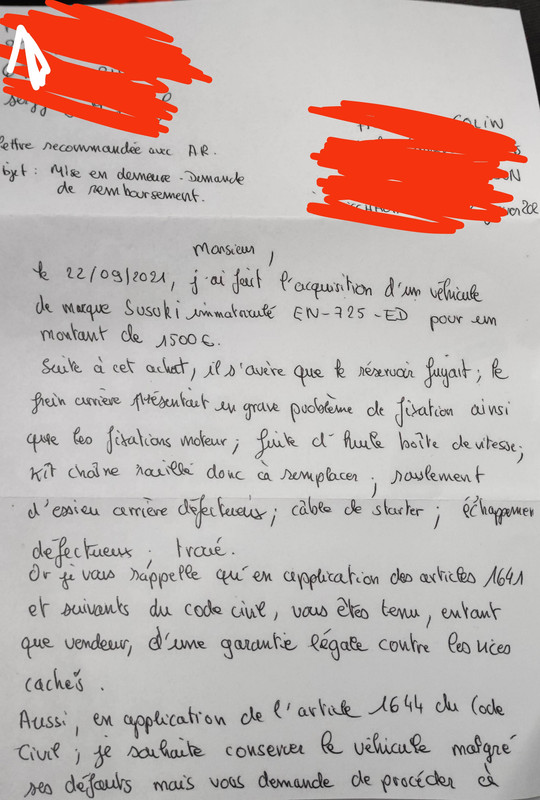 COLIN
Lettre recommandée avec AR.
Objet : Mise en demeure - Demande
de remboursement.
Monsieur,
Le 22/09/2021, j'ai fait l'acquisition d'un véhicule
de marque Susuki immatriculé EN-725-ED pour un
montant de 1500€.
Suite à cet achat, il s'avère que le réservoir fuyait ; le
frein arrière présentait un grave problème de fixation ainsi
que les fixations moteur ; fuite d'huile boîte de vitesse ;
Kit chaîne rouillé donc à remplacer ; roulement
d'essieu arrière défectueux ; câble de starter ; échappement
défectueux ; troué.
Or je vous rappelle qu'en application des articles 1641
et suivants du code civil, vous êtes tenu, entant
que vendeur, d'une garantie légale contre les vices
cachés.
Aussi, en application de l'article 1644 du Code
Civil ; je souhaite conserver le véhicule malgré
ses défauts mais vous demande de procéder à